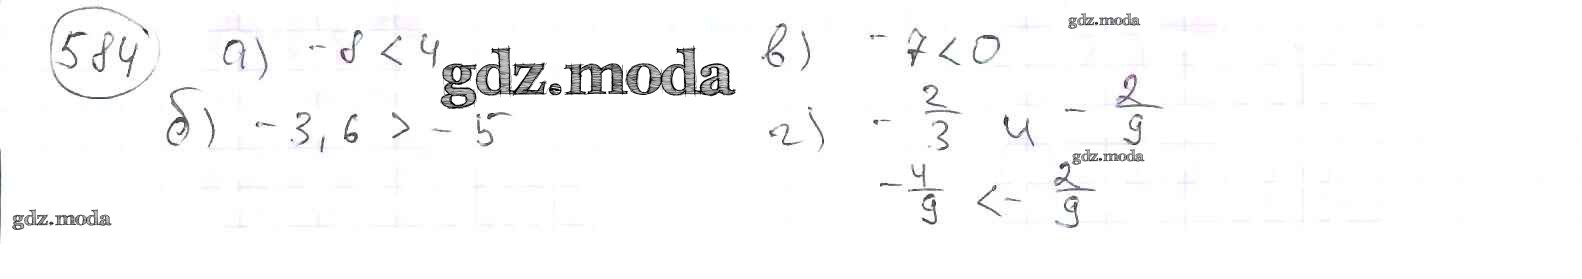 584 а) -8 < 4 в) -7 < 0
б) -3,6 > -5 г) -2/3 и -2/9
-4/9 < -2/9
gdz.moda
gdz.moda
gdz.moda
gdz.moda